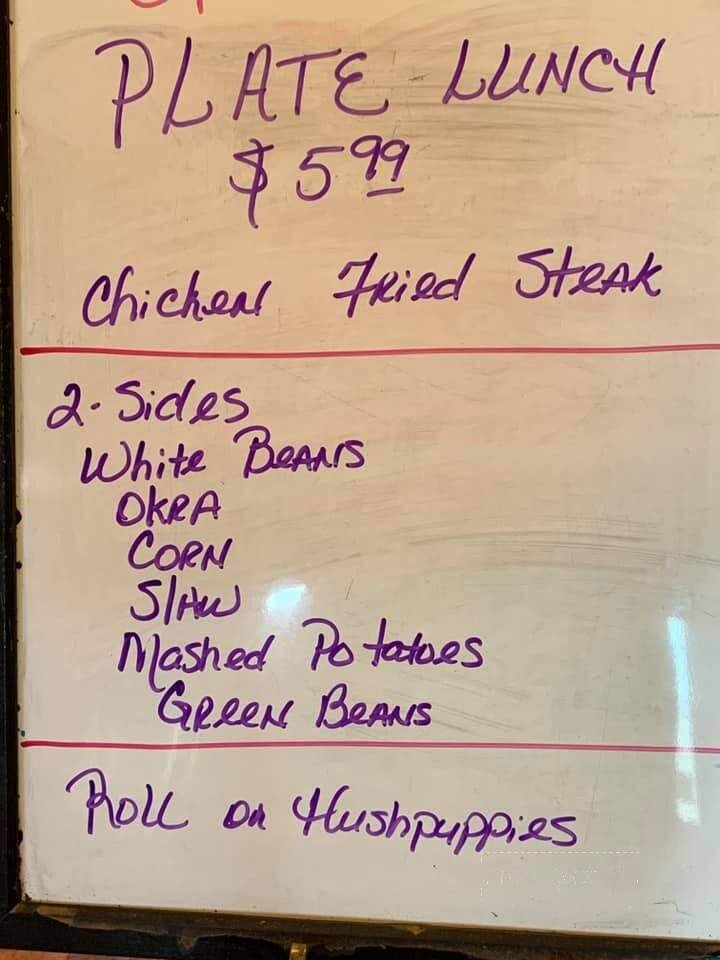 PLATE LUNCH
$5.99
Chicken Fried Steak
2. Sides
White Beans
OKRA
CORN
Slaw
Mashed Potatoes
Green Beans
Roll or Hushpuppies